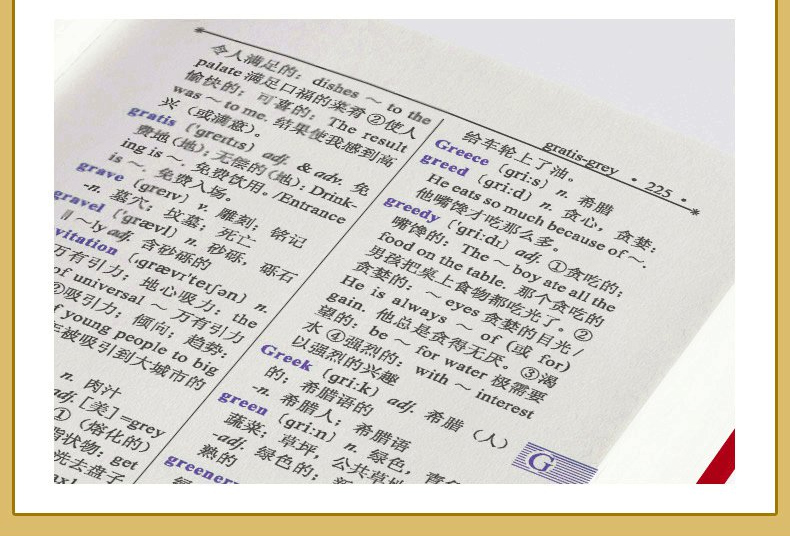 gratis-grey • 225 •
令人满足的: dishes ~ to the
palate 满足口福的菜肴 ②使人
愉快的; 可喜的: The result
was ~ to me. 结果使我感到高
兴 (或满意)。
gratis (ˈgreɪtɪs) adj. & adv. 免
费地(地); 无偿的(地): Drink-
ing is ~. 免费饮用。/Entrance
is ~. 免费入场。
grave (greɪv) v. 雕刻; 铭记
-n. 墓穴; 坟墓; 死亡
gravel (ˈgrævl) n. 砂砾, 砾石
‖ ~ly adj. 含砂砾的
vitation (ˌgrævɪˈteɪʃən) n.
万有引力; 地心吸力: the
of universal ~ 万有引力
②吸引力; 倾向; 趋势:
f young people to big
年被吸引到大城市的
n. 肉汁
adj. [美]=grey
① (熔化的)
脂状物: get
洗去盘子
给车轮上了油。
Greece (gri:s) n. 希腊
greed (gri:d) n. 贪心, 贪婪:
He eats so much because of ~.
他嘴馋才吃那么多。
greedy (ˈgri:dɪ) adj. ①贪吃的;
嘴馋的: The ~ boy ate all the
food on the table. 那个贪吃的
男孩把桌上食物都吃光了。②
贪婪的: ~ eyes 贪婪的目光 /
He is always ~ of (或 for)
gain. 他总是贪得无厌。③渴
望的: be ~ for water 极需要
水 ④强烈的: with ~ interest
以强烈的兴趣
Greek (gri:k) adj. 希腊 (人)
的; 希腊语的
-n. 希腊人; 希腊语
green (gri:n) n. 绿色, 青
蔬菜; 草坪, 公共草地
-adj. 绿色的;
熟的
greener
G